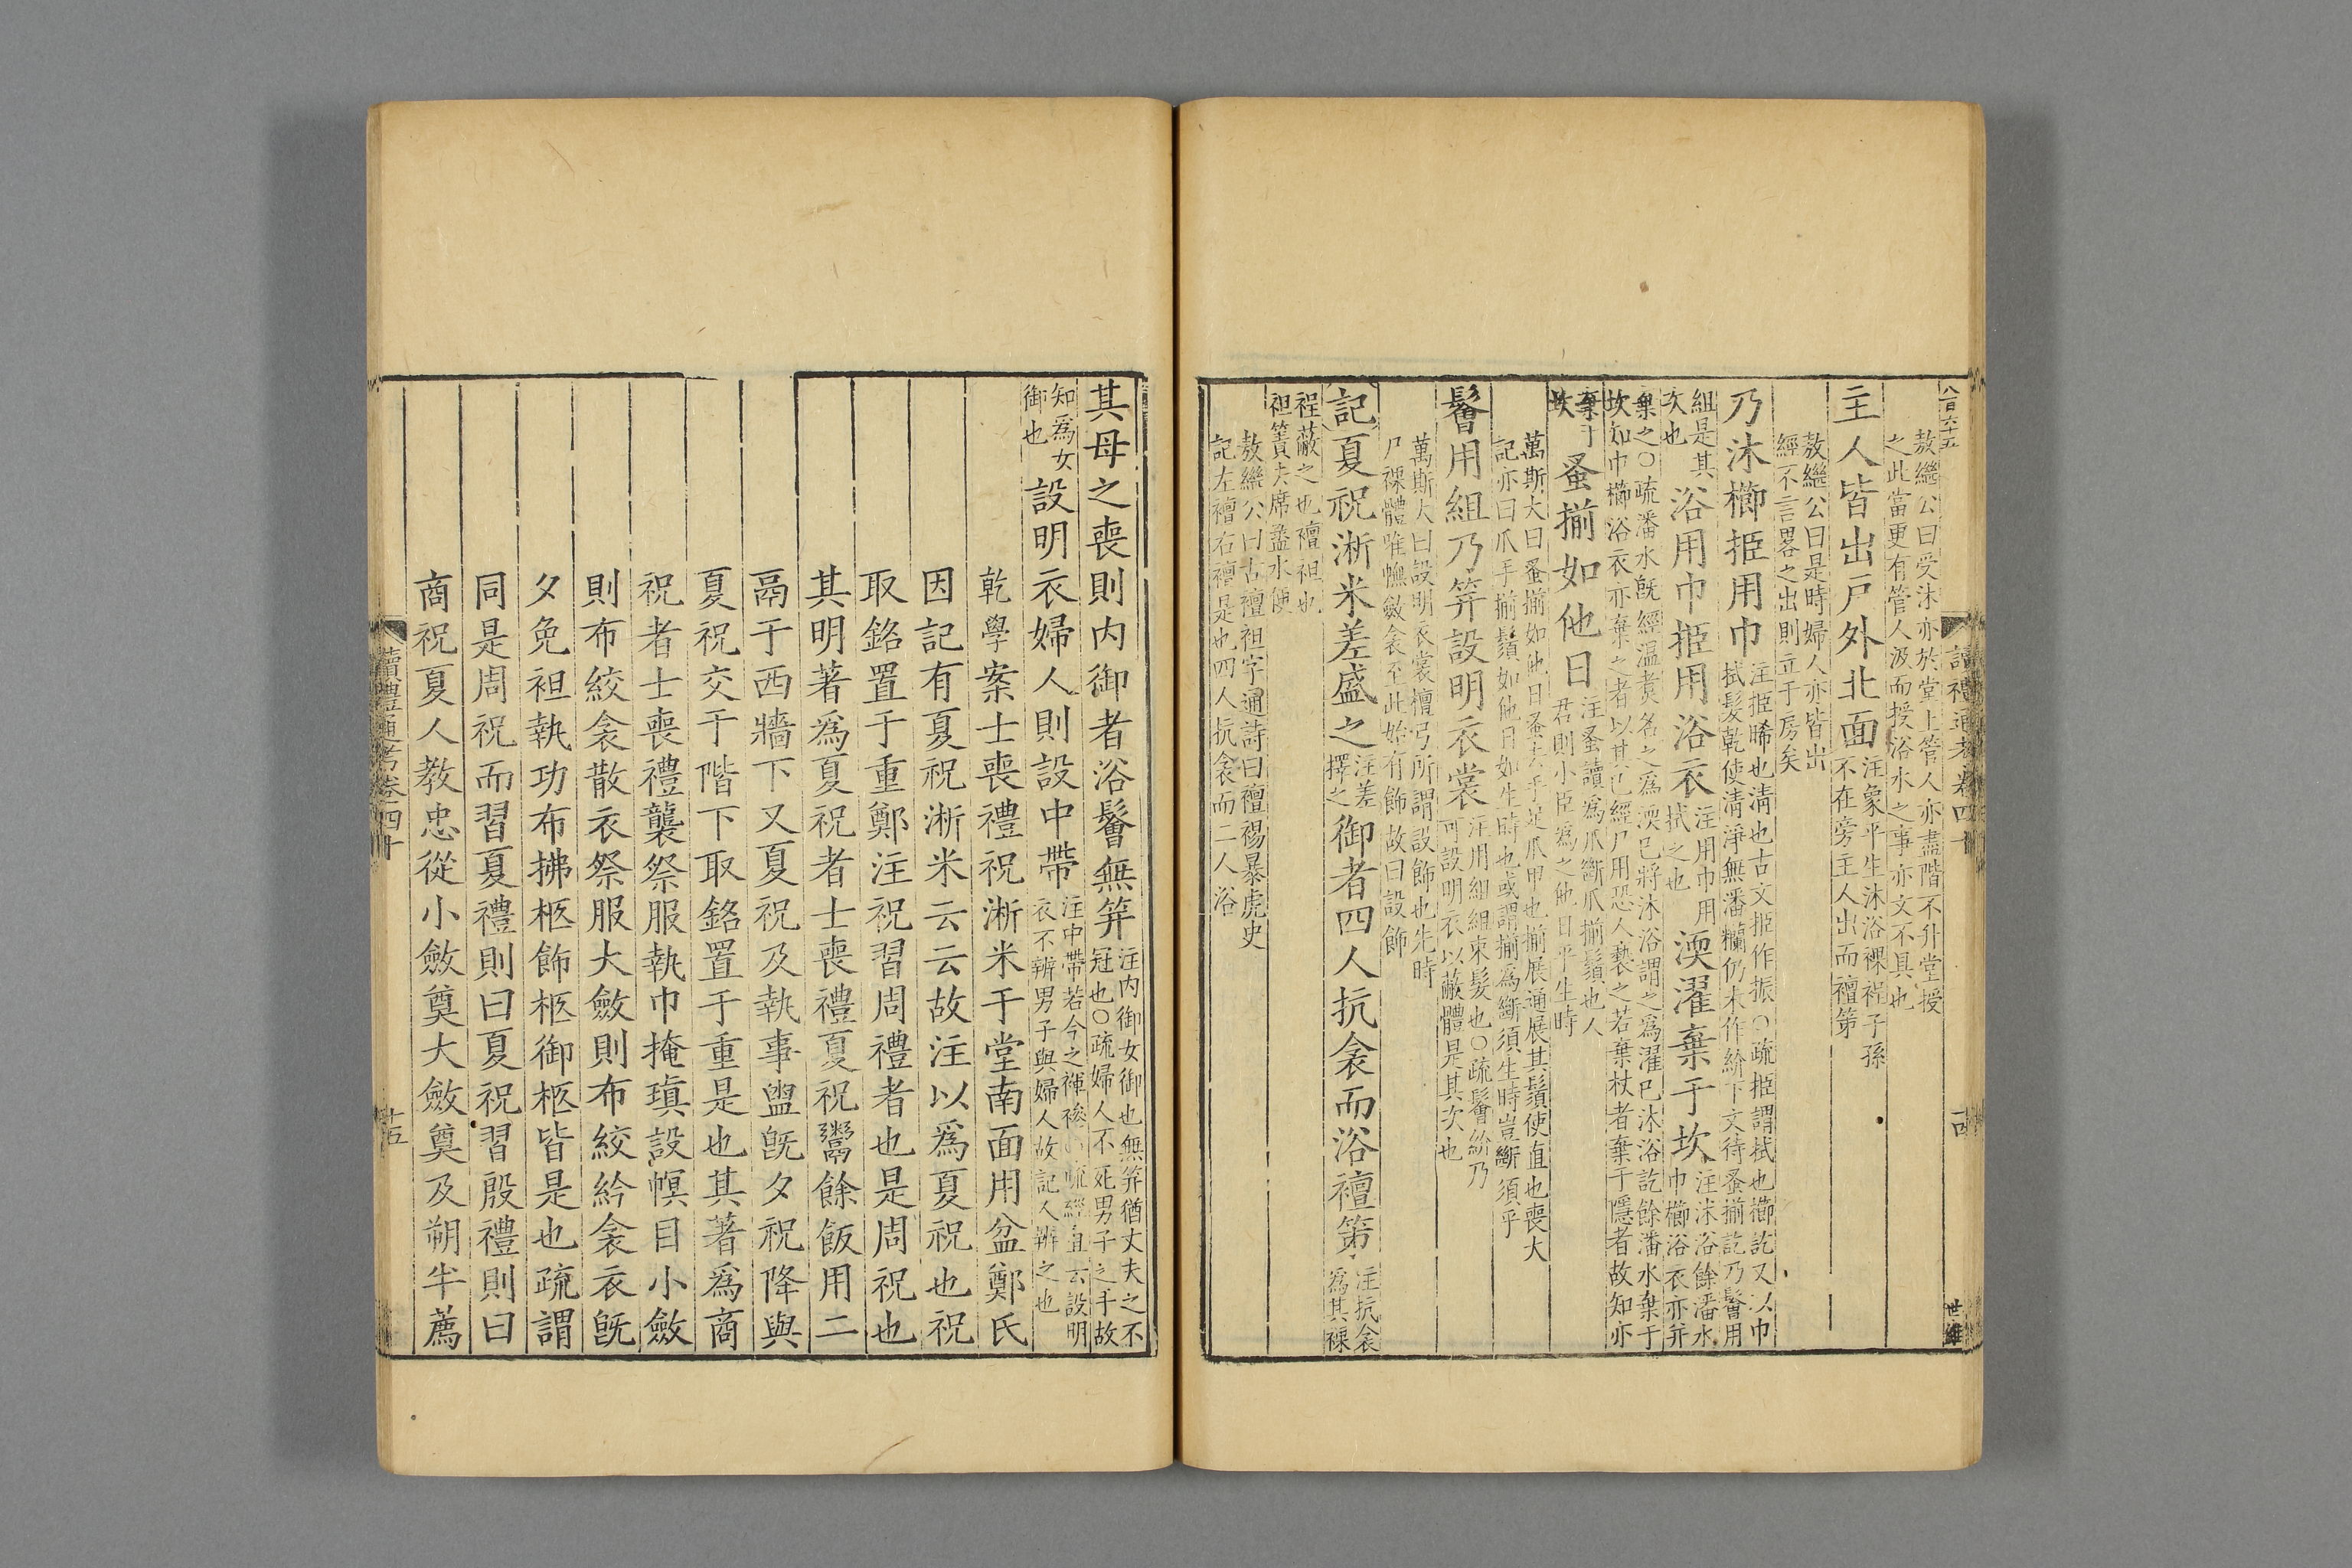 八百六十五
讀禮通考卷四十
世維
敖繼公曰受沐亦於堂上管人亦盡階不升堂授
之此當更有管人汲而授浴水之事亦文不具也
主人皆出戶外北面注象平生沐浴裸裎子孫
不在旁主人出而襢笫
敖繼公曰是時婦人亦皆出
經不言畧之出則立于房矣
乃沐櫛挋用巾注挋晞也清也古文挋作振○疏挋謂拭也櫛訖又以巾
拭髮乾使清淨無潘糷仍未作紒下文待蚤揃訖乃鬠用
組是其
次也浴用巾挋用浴衣注用巾用
拭之也渜濯棄于坎注沐浴餘潘水
巾櫛浴衣亦弃
棄之○疏潘水旣經溫煑名之爲渜巳將沐浴謂之爲濯巳沐浴訖餘潘水棄于
坎知巾櫛浴衣亦棄之者以其巳經尸用恐人褻之若棄杖者棄于隱者故知亦
棄于
坎蚤揃如他日注蚤讀爲爪斷爪揃鬚也人
君則小臣爲之他日平生時
萬斯大曰蚤揃如他日蚤去手足爪甲也揃展通展其鬚使直也喪大
記亦曰爪手揃鬚如他日如生時也或謂揃爲斷須生時豈斷須乎
鬠用組乃筓設明衣裳注用組組束髮也○疏鬠紒乃
可設明衣以蔽體是其次也
萬斯大曰設明衣裳檀弓所謂設飾也先時
尸裸體唯幠斂衾至此始有飾故曰設飾
記夏祝淅米差盛之注差
擇之御者四人抗衾而浴襢笫注抗衾
爲其裸
裎蔽之也襢袒也
袒簀去席盝水便
敖繼公曰古襢袒字通詩曰襢裼暴虎史
記左襢右襢是也四人抗衾而二人浴
其母之喪則内御者浴鬠無筓注内御女御也無筓猶丈夫之不
冠也○疏婦人不死男子之手故
知爲女
御也設明衣婦人則設中帶注中帶若今之褌襂○疏經直云設明
衣不辨男子與婦人故記人辨之也
乾學案士喪禮祝淅米于堂南面用盆鄭氏
因記有夏祝淅米云云故注以爲夏祝也祝
取銘置于重鄭注祝習周禮者也是周祝也
其明著爲夏祝者士喪禮夏祝鬻餘飯用二
鬲于西牆下又夏祝及執事盥旣夕祝降與
夏祝交于階下取銘置于重是也其著爲商
祝者士喪禮襲祭服執巾掩瑱設幎目小斂
則布絞衾散衣祭服大斂則布絞紟衾衣旣
夕免袒執功布拂柩飾柩御柩皆是也疏謂
同是周祝而習夏禮則曰夏祝習殷禮則曰
商祝夏人教忠從小斂奠大斂奠及朔半薦
讀禮通考卷四十
十五